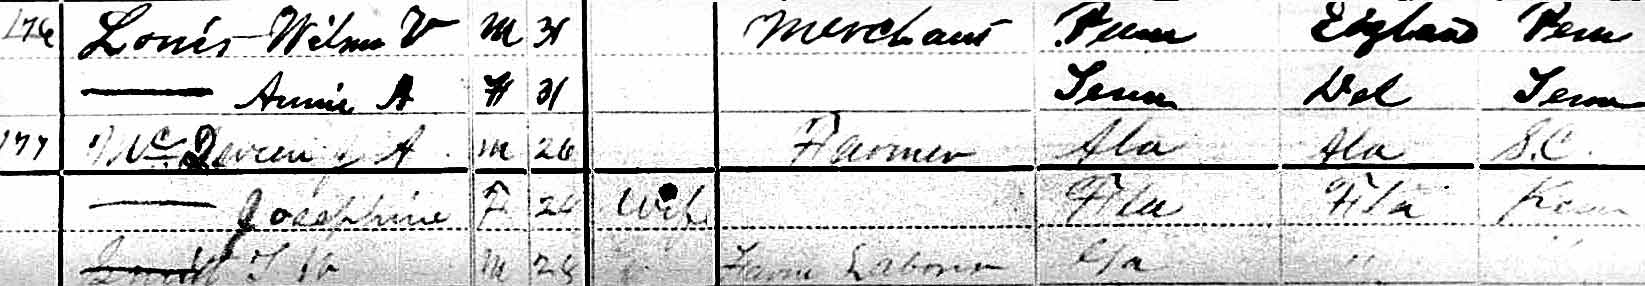 176 Louis Wilmer V M 31 Merchant Penn England Penn
Annie A F 31 Tenn Del Tenn
177 A M 26 Farmer Ala Ala S.C.
Josephine F 24 Wife Fla Fla
M Farm Laborer Ga "